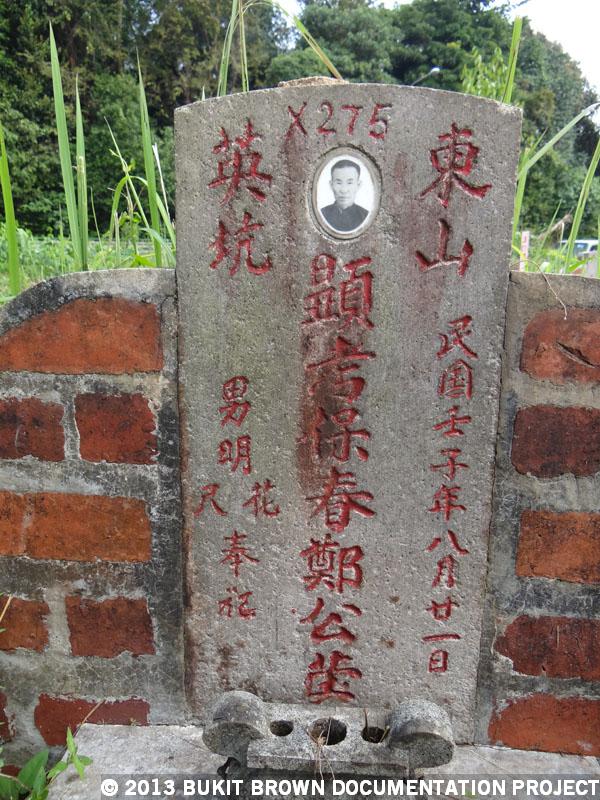 X275
東山
民国壬子年八月廿一日
顯考保春鄭公茔
英坑
男明花尺奉祀
© 2013 BUKIT BROWN DOCUMENTATION PROJECT